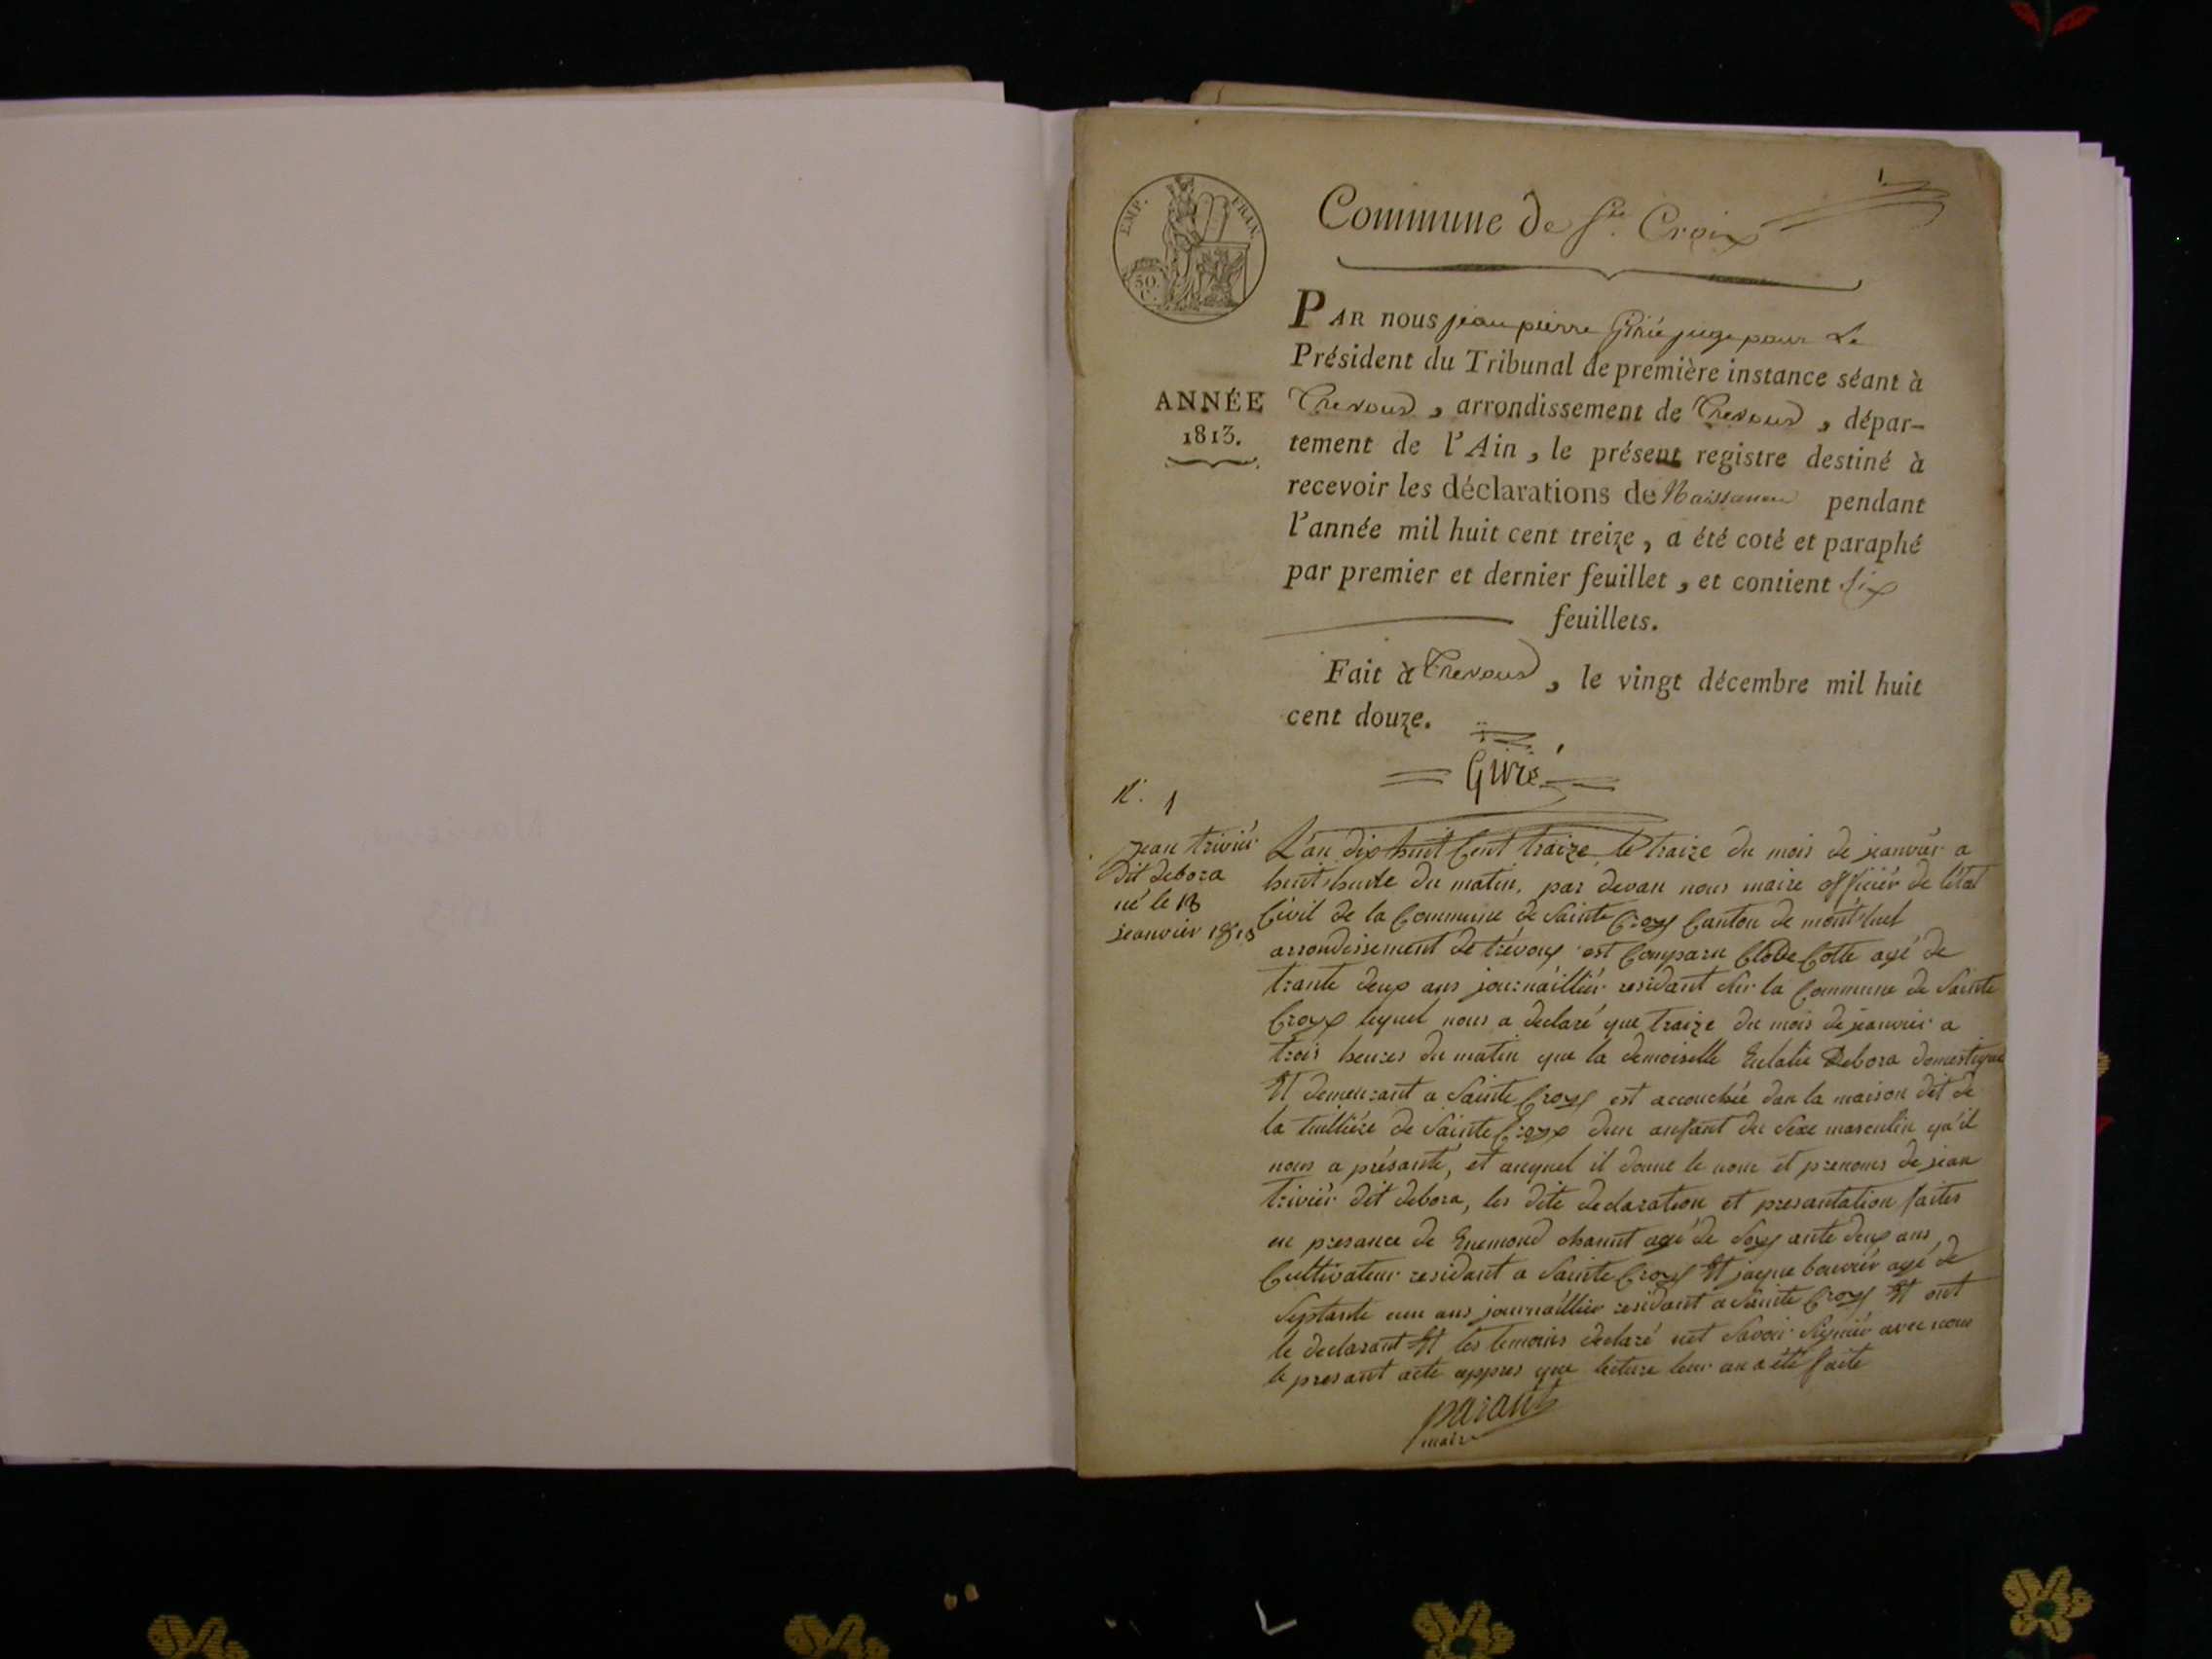 1
EMP. FRAN.
50.
C.
Commune de Ste. Croix
PAR nous jean pierre Girié juge pour Le
Président du Tribunal de première instance séant à
Trevoux, arrondissement de Trevoux, dépar-
tement de l'Ain, le présent registre destiné à
recevoir les déclarations de Naissances pendant
l'année mil huit cent treize, a été coté et paraphé
par premier et dernier feuillet, et contient Six
feuillets.
ANNÉE
1813.
Fait à Trevoux, le vingt décembre mil huit
cent douze.
Girié
N. 1
jean triviér
dit debora
né le 13
jeanviér 1813
L'an dix huit Cent traize le traize du mois de jeanviér a
huit heure du matin, par devan nous maire officiér de l'état
Civil de la Commune de Sainte Croyx Canton de montluel
arrondissement de trévoux est Comparu Clode Cotte agé de
trante deux ans journaillier residant sur la Commune de Sainte
Croyx lequel nous a declaré que traize du mois de jeanviér a
trois heures du matin que la demoiselle Eulalie Debora domestique
Et demeurant a Sainte Croyx est accouchée dan la maison dit de
la tuilliére de Sainte Croyx dun anfant du Sexe masculin qu'il
nous a présanté, et auquel il donne le nom et prenoms de jean
triviér dit debora, les dite declaration et presantation faites
en presance de Enemond agé de Soyxante deux ans,
Cultivateur residant a Sainte Croyx Et jaque bouviér agé de
Septante un ans journaillier residant a Sainte Croyx Et ont
le declarant Et les temoins declaré net Savoir Signiér avec nous
le presant acte appres que lecture leur an a été faite
parant
maire